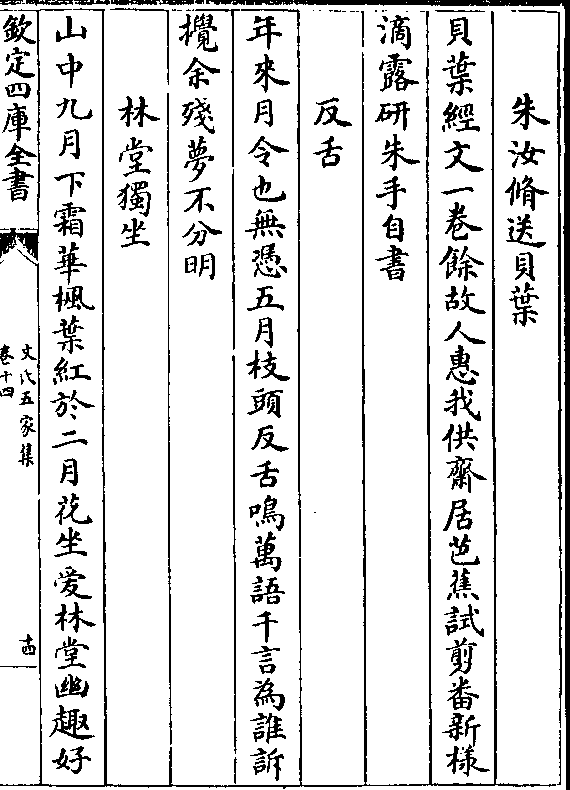 朱汝脩送貝葉
貝葉經文一卷餘故人惠我供齋居芭蕉試剪番新様
滴露研朱手自書
反舌
年來月令也無憑五月枝頭反舌鳴萬語千言為誰訴
攪余殘夢不分明
林堂獨坐
山中九月下霜華楓葉紅於二月花坐爱林堂幽趣好
欽定四庫全書
文氏五家集
卷十四
十四